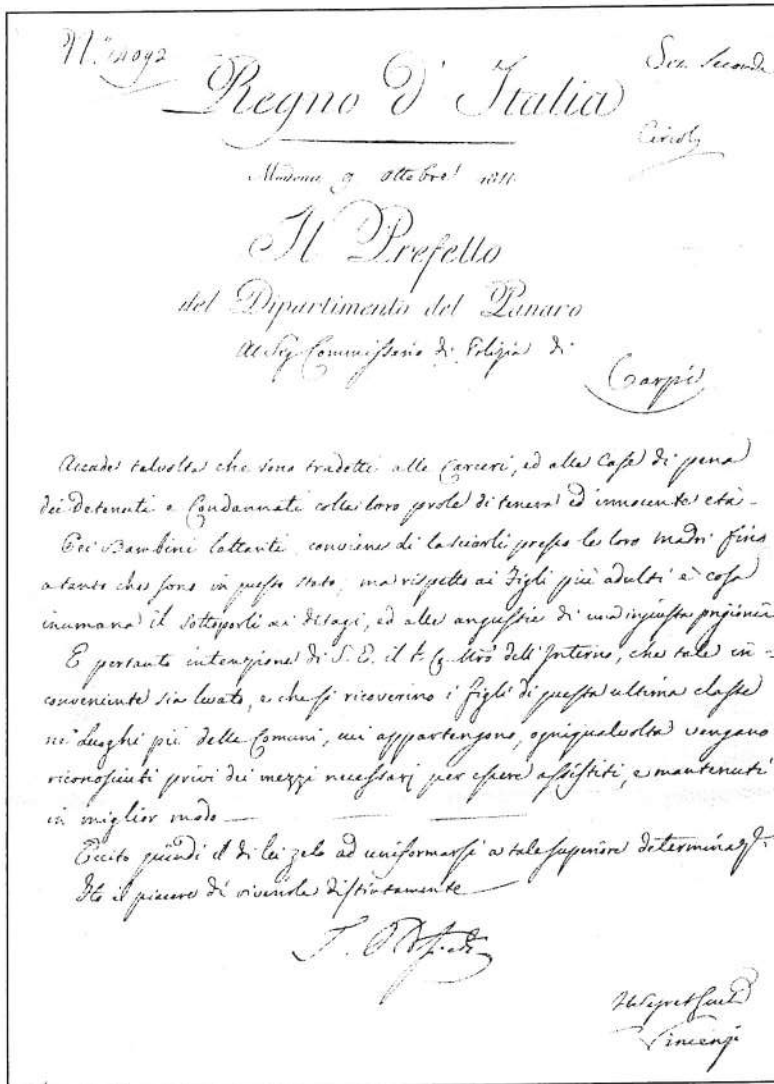 N.° 14092
Sez. Seconda
Regno d' Italia
Circol.
Modena 9 Ottobre 1811
Il Prefetto
del Dipartimento del Panaro
Al Sig Commissario di Polizia di
Carpi
Accade talvolta che sono tradotti alle Carceri, ed alle Case di pena
dei detenuti e Condannati colla loro prole di tenera ed innocente età –
Pei Bambini lattanti conviene di lasciarli presso le loro madri fino
a tanto che sono in questo stato; ma rispetto ai Figli più adulti è cosa
inumana il sottoporli ai disagi, ed alle angustie di una ingiusta prigionia
E pertanto intenzione di S. E. il Mrō dell'Interno, che tale in-
conveniente sia levato, e che si ricoverino i figli di questa ultima classe
ne' Luoghi pii delle Comuni, cui appartengono, ogniqualvolta vengano
riconosciuti privi dei mezzi necessarj per essere assistiti, e mantenuti
in miglior modo —
Eccito quindi il di lei zelo ad uniformarsi a tale superiore determinazē.
Ho il piacere di riverirla distintamente
Il Segret Gen
Vincenzi